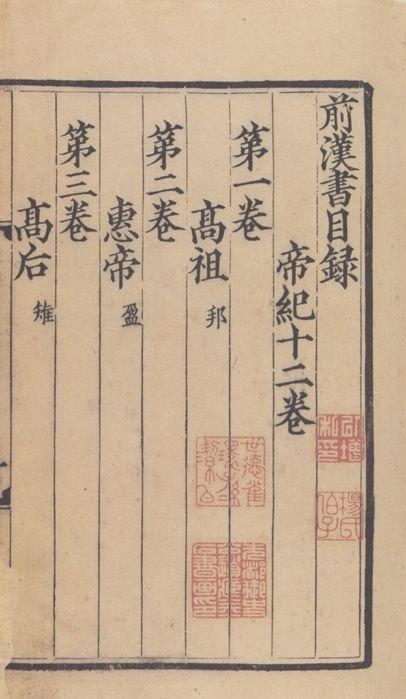 前漢書目録
帝紀十二卷
第一卷
髙祖 邦
第二卷
惠帝 盈
第三卷
髙后 雉
楊氏